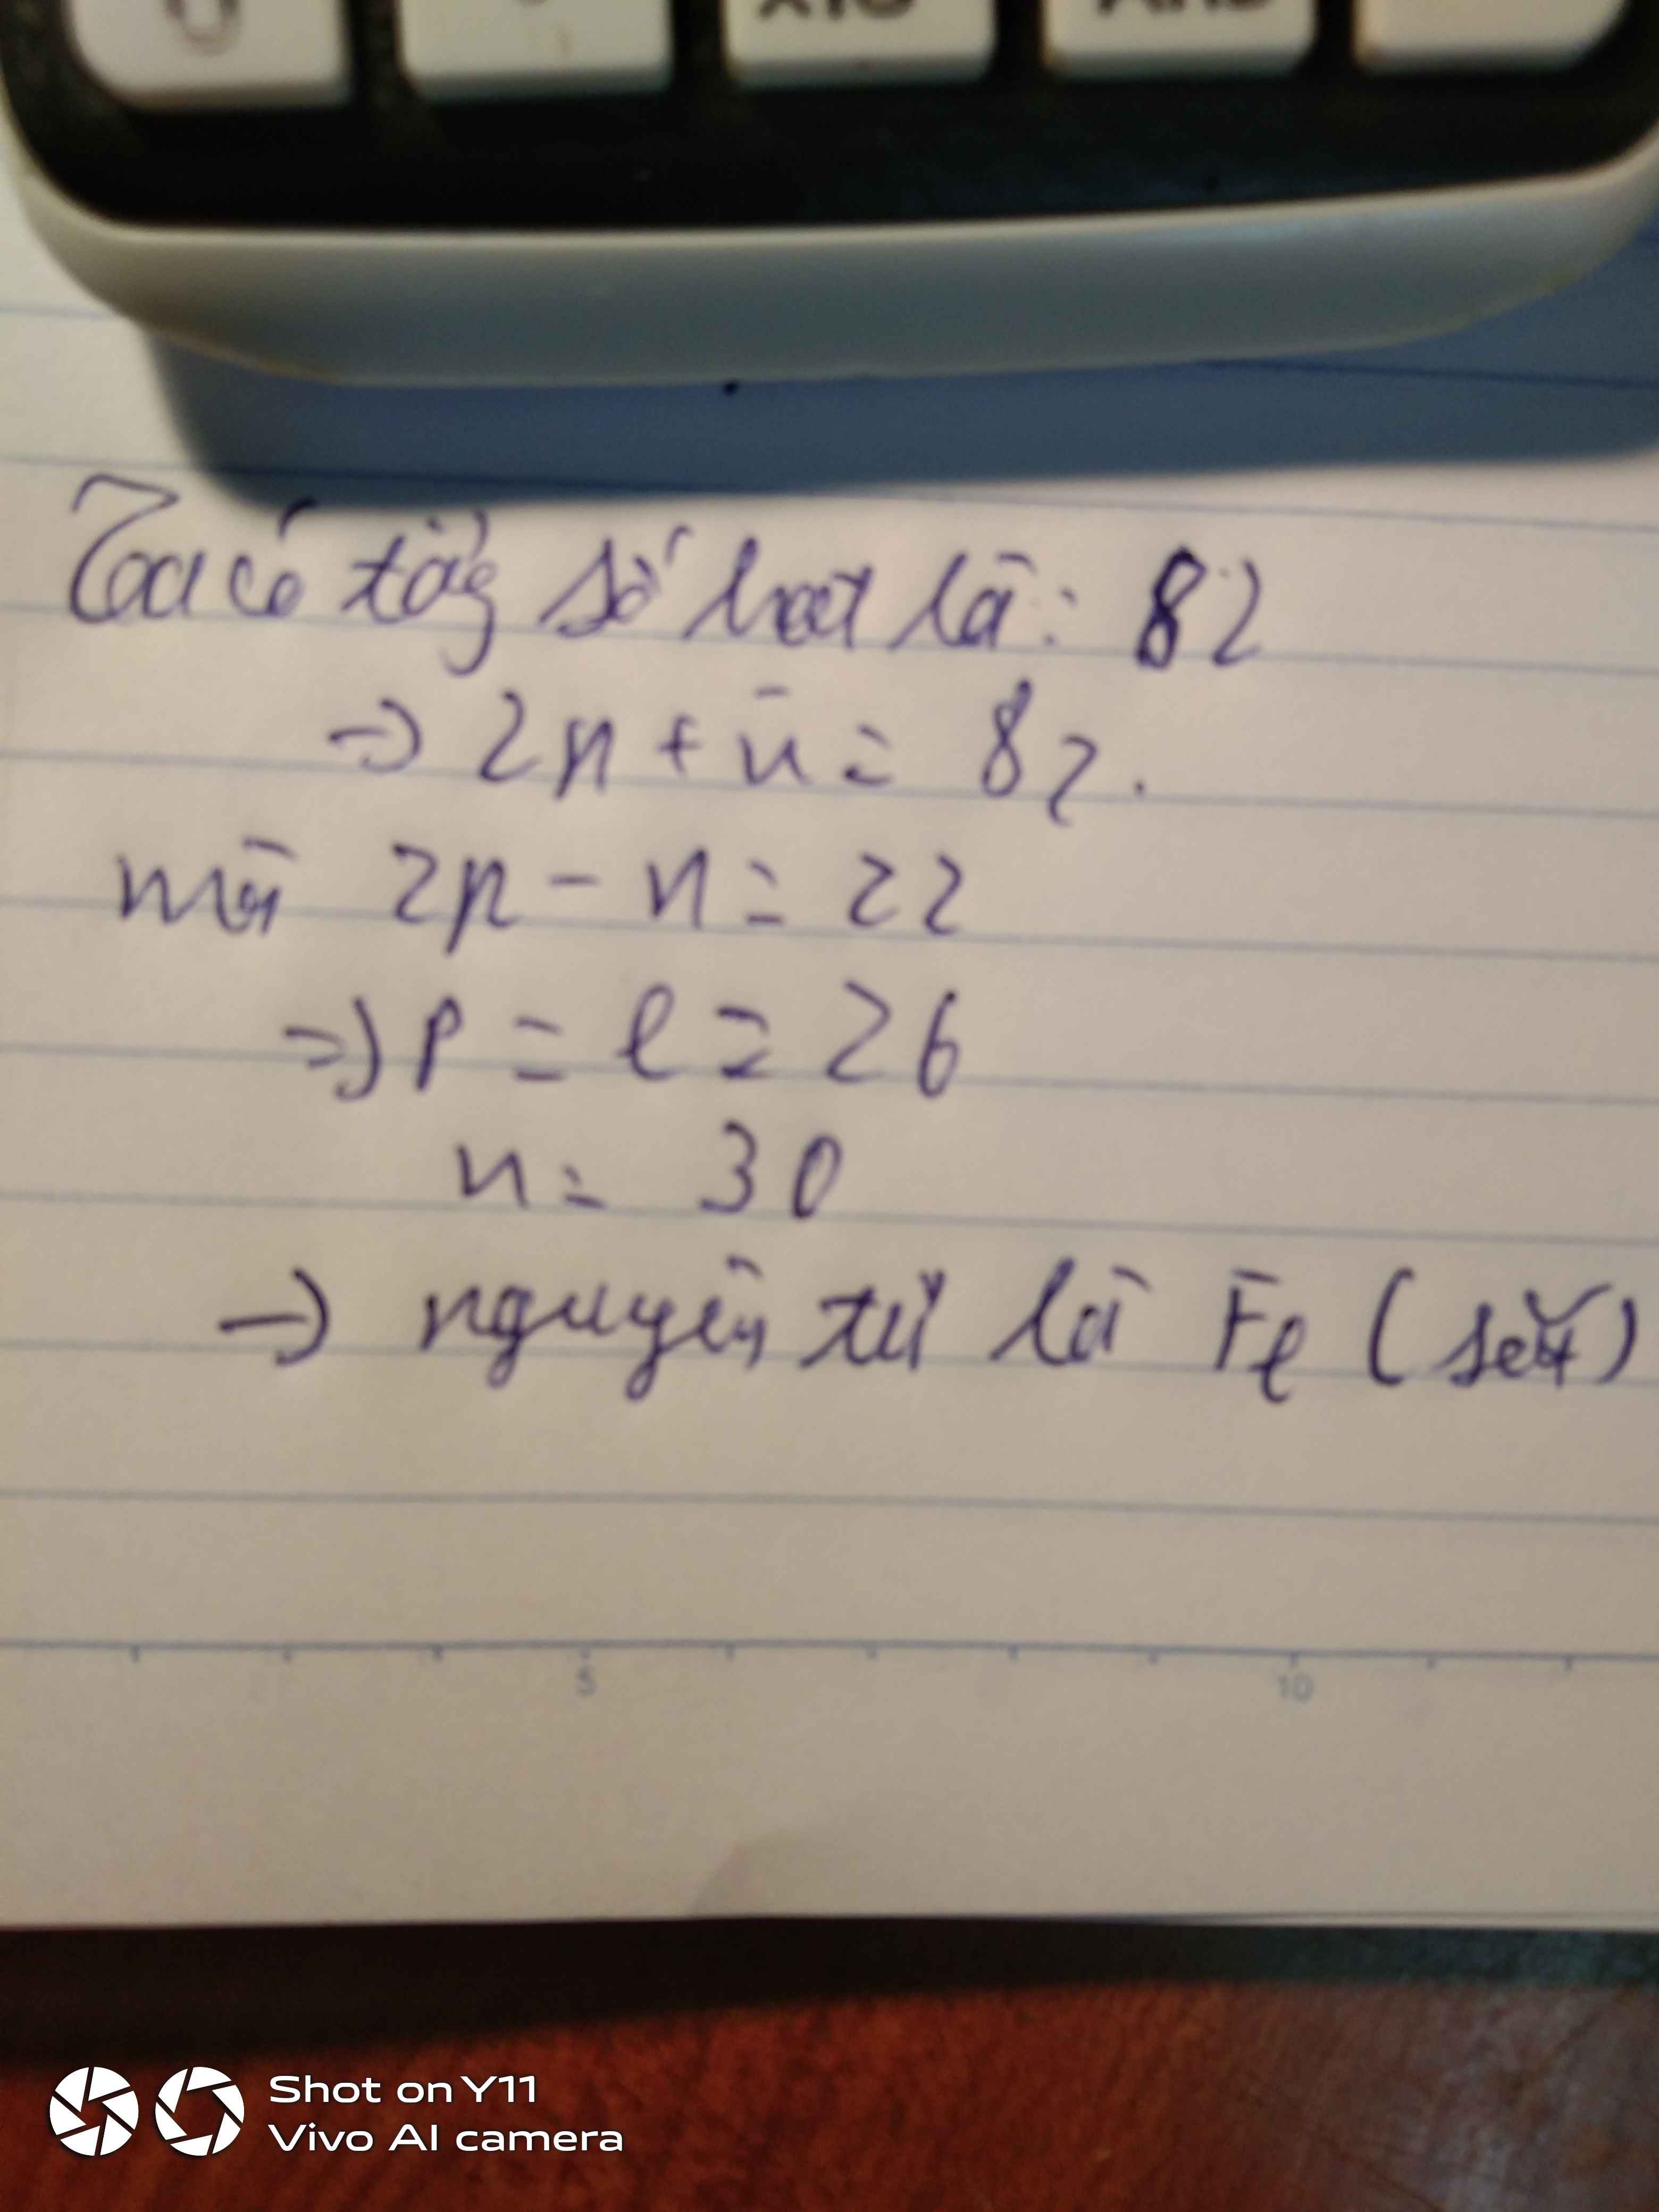 Ta có tổng số hạt là: 82
=> 2p + n = 82.
mà 2p - n = 22
=> p = e = 26
n = 30
-> nguyên tử là Fe (sắt)
5 10
Shot on Y11
Vivo AI camera